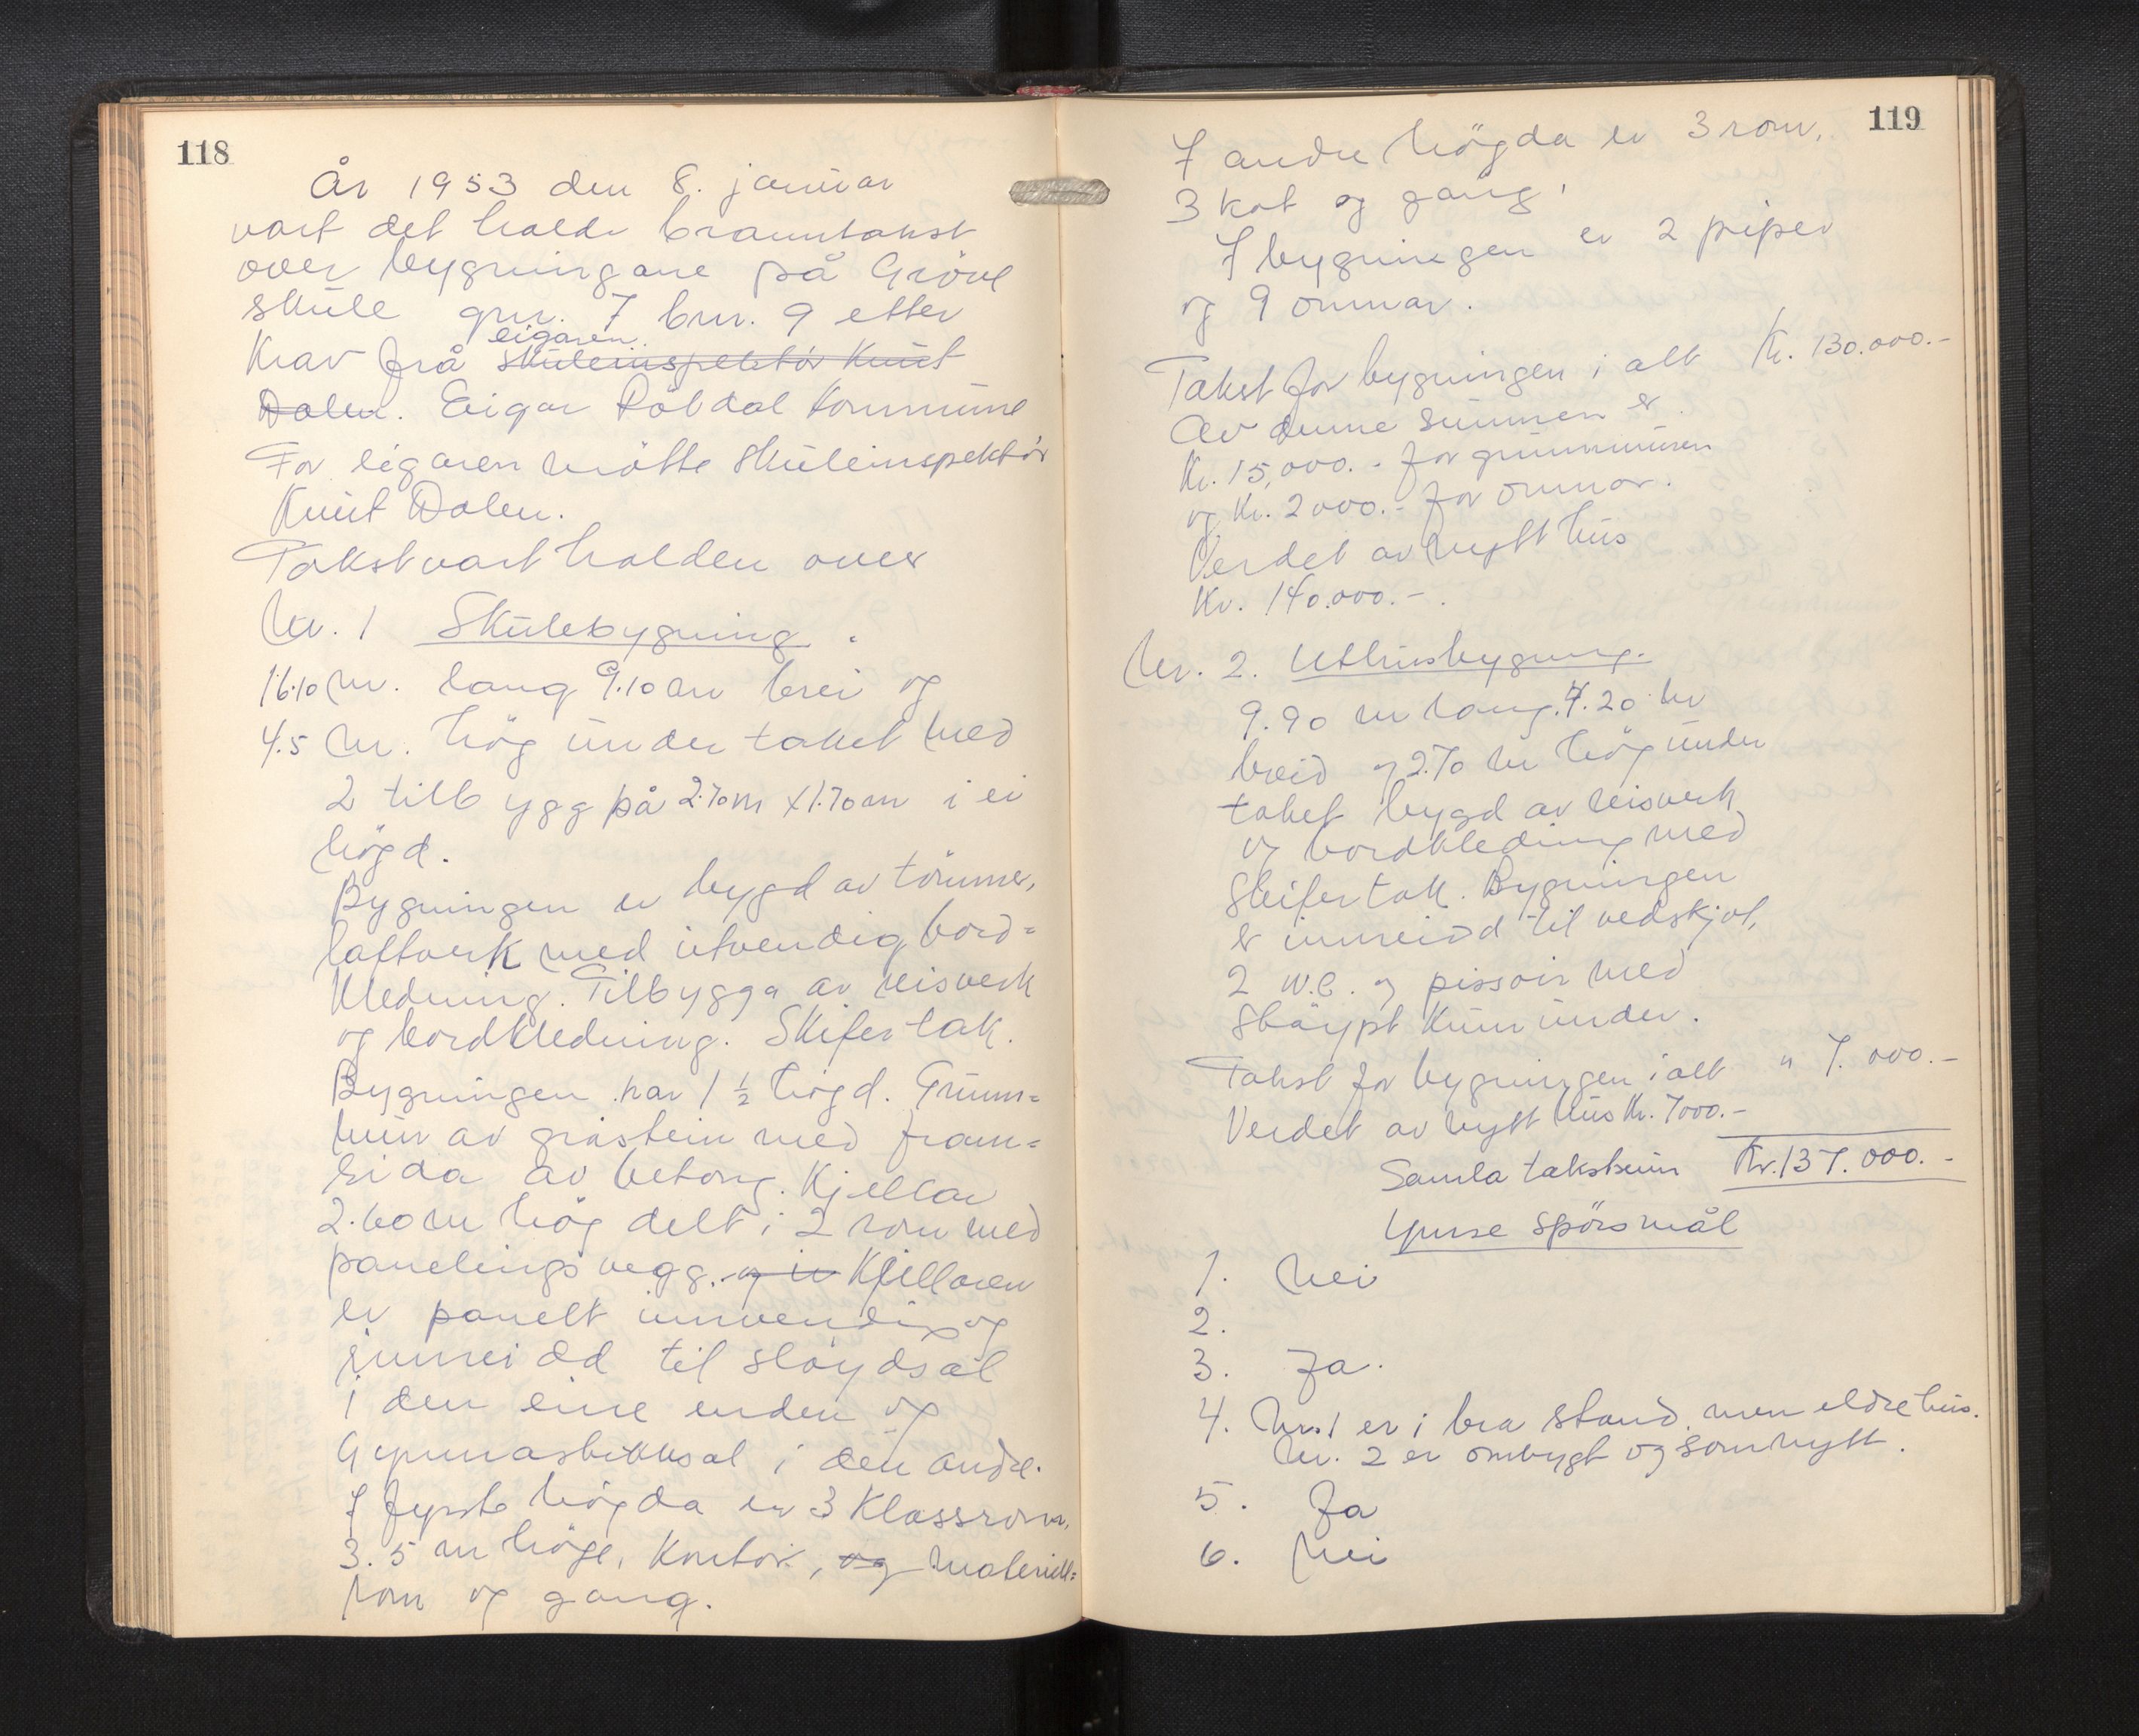 118
År 1953 den 8. januar
vart det halde branntakst
over bygningane på Gröve
skule gnr. 7 bnr. 9 etter
eigaren
Krav frå skuleinspektör Knut
Dalen. Eigar Röldal kommune
For eigaren mötte skuleinspektör
Knut Dalen.
Takst vart halden over
Nr. 1 Skulebygning.
16.10 m. lang 9.10 m brei og
4.5 m. hög under taket med
2 tilbygg på 2.70 m x 1.70 m i ei
högd.
Bygningen er bygd av tömmer,
laftverk med utvendig bord=
kledning. Tilbygga av reisverk
og bordkledning. Skifertak.
Bygningen har 1 ½ högd. Grunn=
mur av gråstein med fram=
sida av betong. Kjellar
2.60 m hög delt i 2 rom med
panelingsvegg. og er Kjellaren
er panelt innvendig og
innreidd til slöydsal
i den eine enden og
Gymnastikksal i den andre.
I fyrste högda er 3 Klassrom,
3.5 m höge, Kontor, og materiell=
rom og gang.
119
I andre högda er 3 rom,
3 kot og gang.
I bygningen er 2 piper
og 9 omnar.
Takst for bygningen i alt Kr. 130.000.-
Av denne summen er
Kr. 15,000.- for grunnmuren
og Kr. 2000.- for omnar.
Verdet av nytt hus
Kr. 140.000.-.
Nr. 2. Uthusbygning.
9.90 m lang. 4.20 m
breid og 2.70 m hög under
taket bygd av reisverk
og bordkledning med
Skifertak. Bygningen
er innreidd til vedskjol,
2 W.C. og pissoir med
stöypt Kum under.
Takst for bygningen i alt " 7.000.-
Verdet av nytt hus Kr. 7000.-
Samla takstsum Kr. 137.000.-
Ymse spörsmål
1. Nei
2.
3. Ja.
4. Nr. 1 er i bra stand, men eldre hus.
Nr. 2 er ombygt og som nytt.
5. Ja
6. Nei